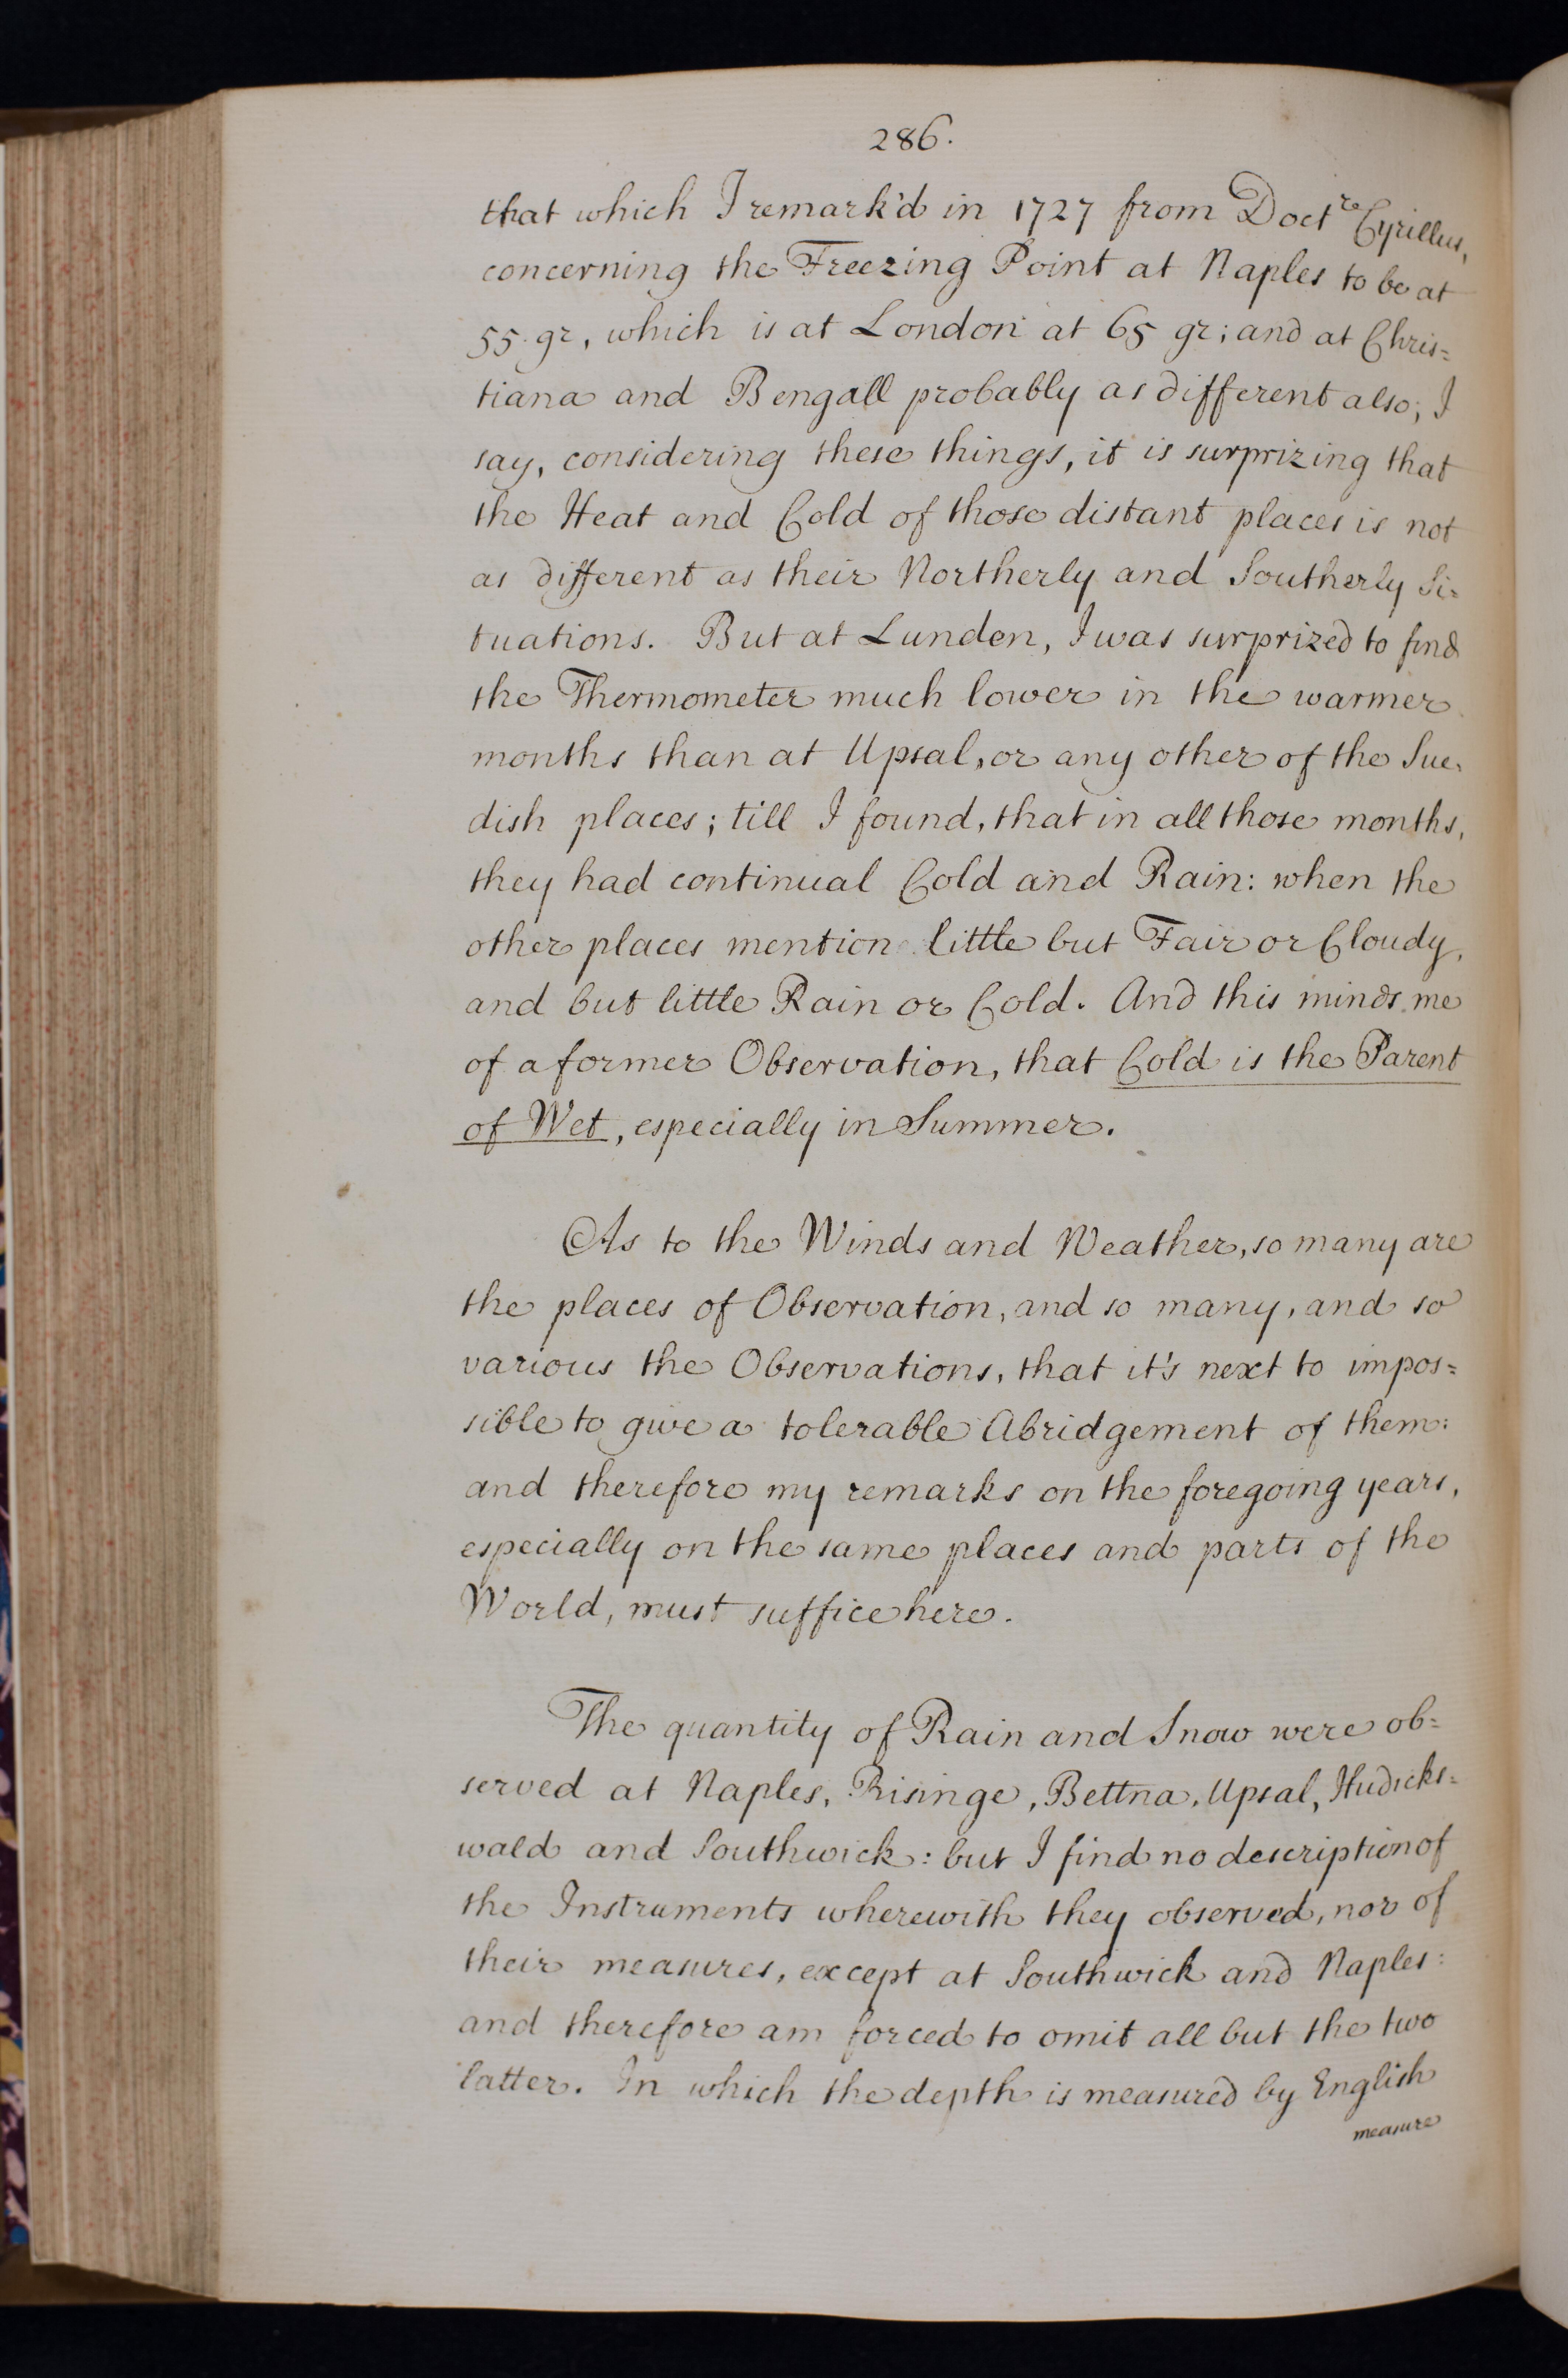 286.
that which I remark'd in 1727 from Doct.re Cyrillus,
concerning the Freezing Point at Naples to be at
55. gr, which is at London at 65 gr; and at Chris=
tiana and Bengall probably as different also; I
say, considering these things, it is surprizing that
the Heat and Cold of those distant places is not
as different as their Northerly and Southerly Si=
tuations. But at Lunden, I was surprized to find
the Thermometer much lower in the warmer
months than at Upsal, or any other of the Sue=
dish places; till I found, that in all those months,
they had continual Cold and Rain: when the
other places mention little but Fair or Cloudy,
and but little Rain or Cold. And this minds me
of a former Observation, that Cold is the Parent
of Wet, especially in Summer.
As to the Winds and Weather, so many are
the places of Observation, and so many, and so
various the Observations, that it's next to impos=
sible to give a tolerable Abridgement of them:
and therefore my remarks on the foregoing years,
especially on the same places and parts of the
World, must suffice here.
The quantity of Rain and Snow were ob=
served at Naples, Risinge, Bettna, Upsal, Hudicks=
wald and Southwick: but I find no description of
the Instruments wherewith they observed, nor of
their measures, except at Southwick and Naples:
and therefore am forced to omit all but the two
latter. In which the depth is measured by English
measure